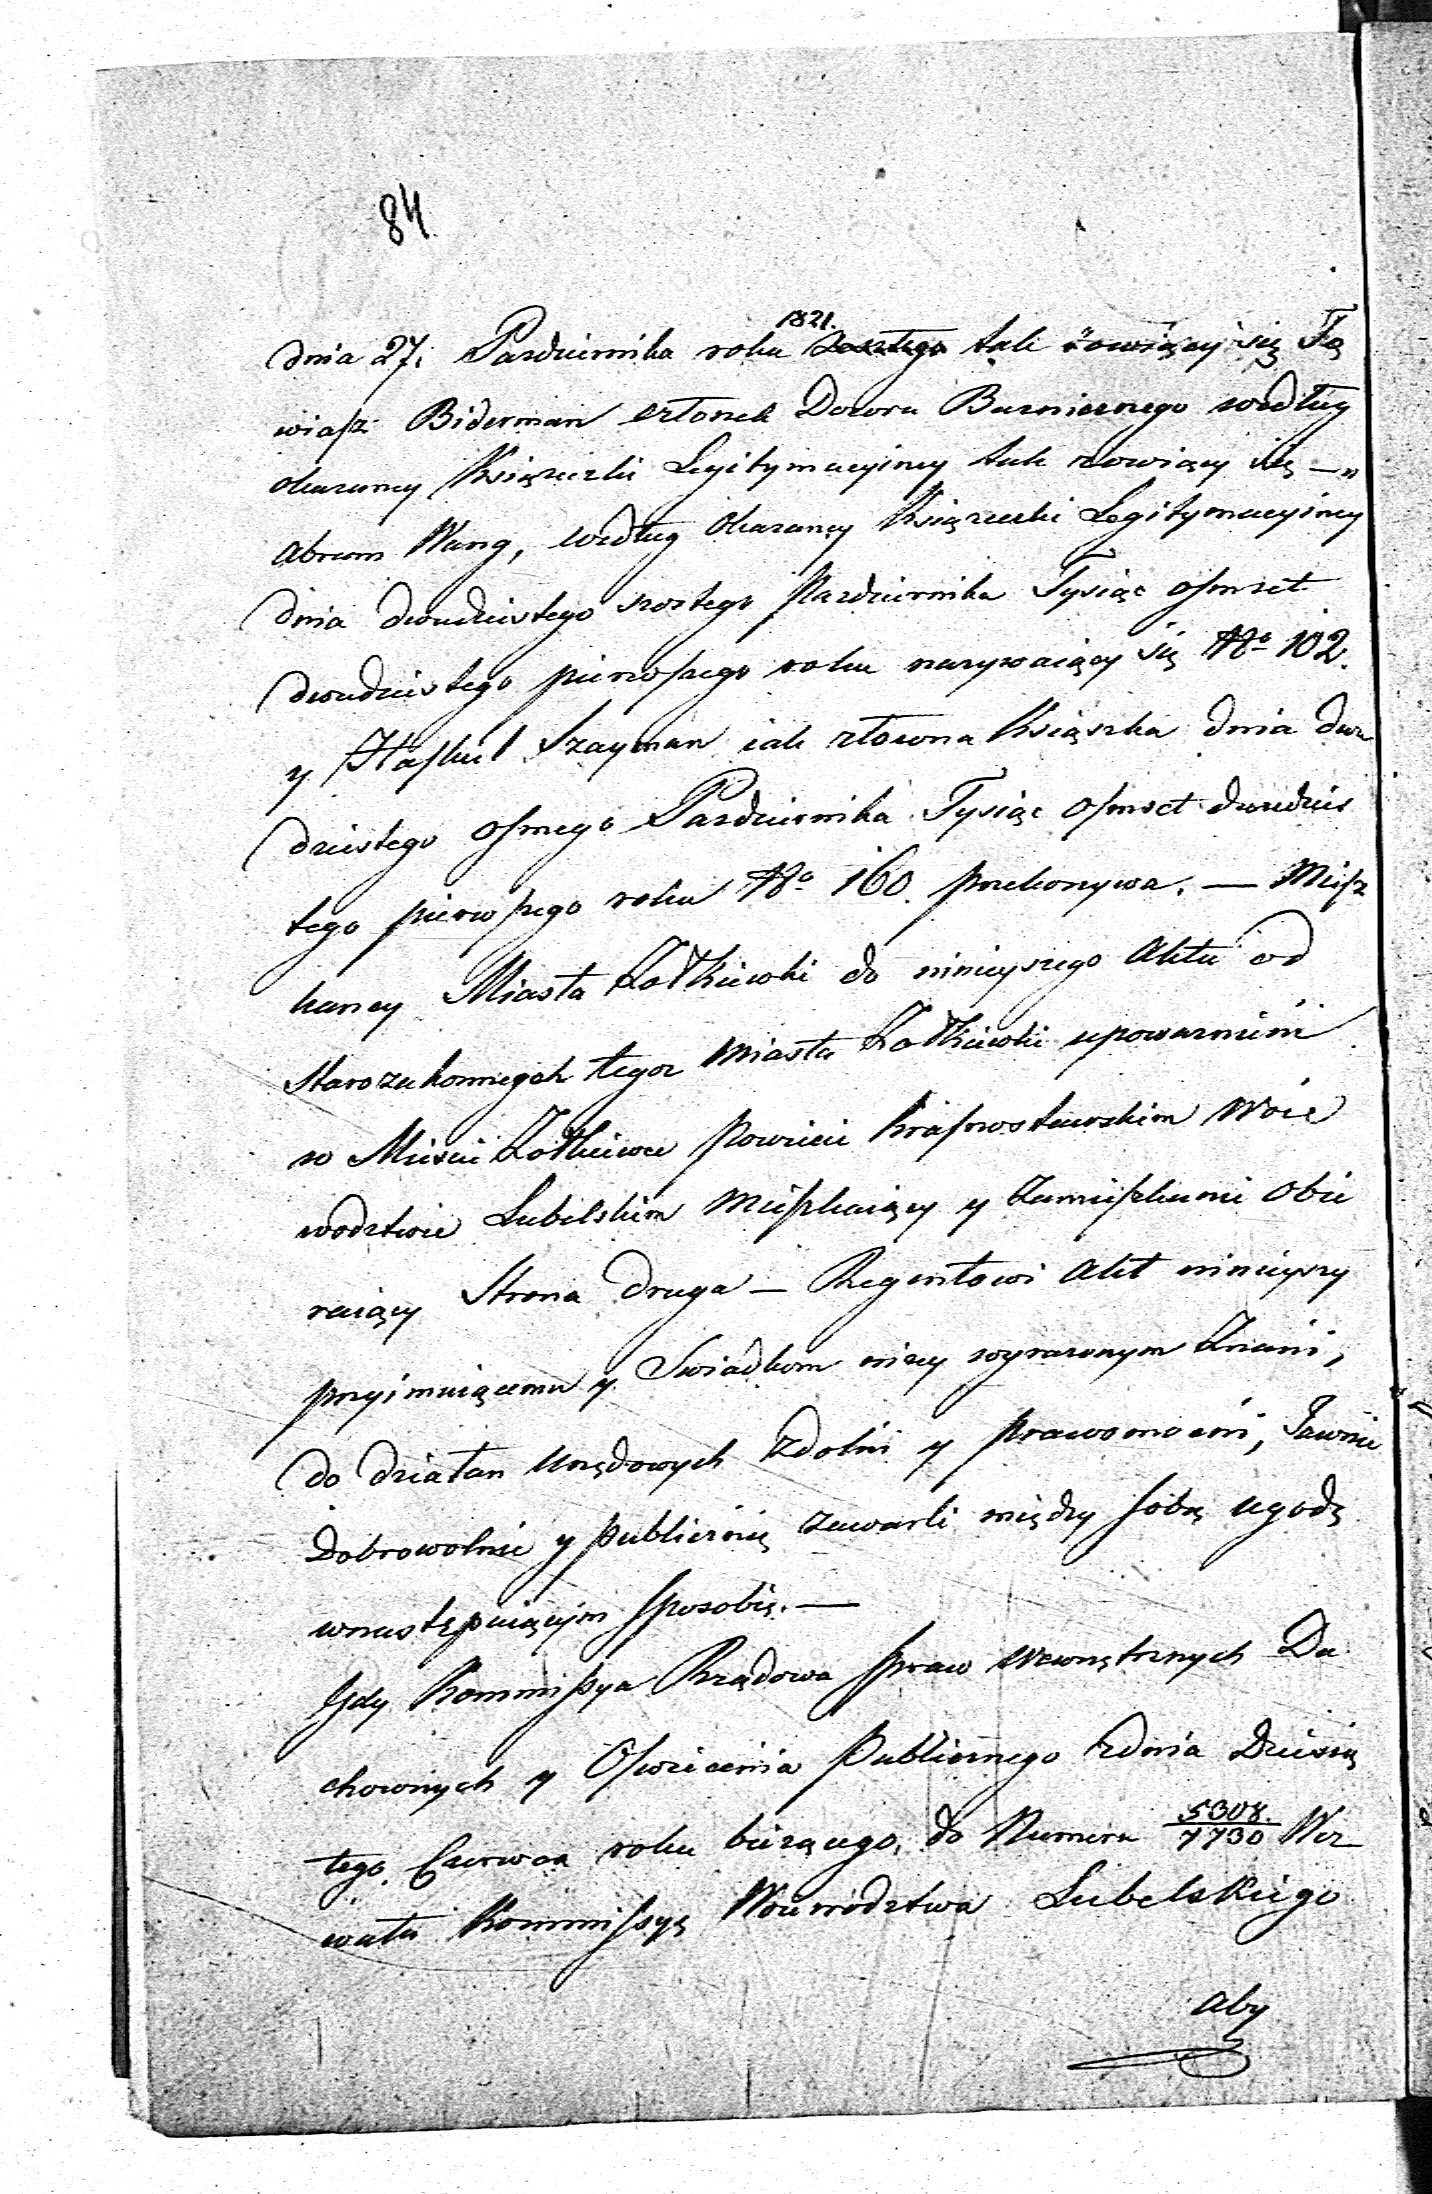 84.
1821.
dnia 27. Pazdziernika roku zeszłego tak zowiący się To
wiasz Biderman członek Dozoru Buznicznego według
okazaney Książeczki Legitymacyiney tak zowiący się —„
Abram Wang, według okazaney Książeczki Legitymacyiney
dnia dwudziestego szostego Pazdziernika Tysiąc osmset
dwudziestego pierwszego roku nazywaiący się No 102.
y Haskiel Szayman iak słowna Książka dnia dwu
dziestego osmego Pazdziernika Tysiąc osmset dwudzies
tego pierwszego roku No 160. przekonywa. — Miesz
kancy Miasta Zołkiewki do ninieyszego Aktu od
Starozakonnych tegoz Miasta Zołkiewki upowaznieni
w Miescie Zołkiewce Powiecie Krasnostawskim Woie
wodztwie Lubelskim Mieszkaiący y Zamieszkanie obie
raiący Strona druga — Regentowi Akt ninieyszy
przyimuiącemu y Swiadkom nizey wyrazonym Znani,
do działan Urzędowych zdolni y prawomocni, Jawnie
Dobrowolnie y publicznie zawarli między sobą ugodę
wnastępuiącym sposobie. —
Gdy Kommissya Rządowa spraw Wewnętrznych Du
chownych y Oswiecenia Publicznego zdnia Dziesią
tego Czerwca roku bieżącego, do Numeru 5308./7730 Wez
wała Kommissyę Woiewodztwa Lubelskiego
Aby